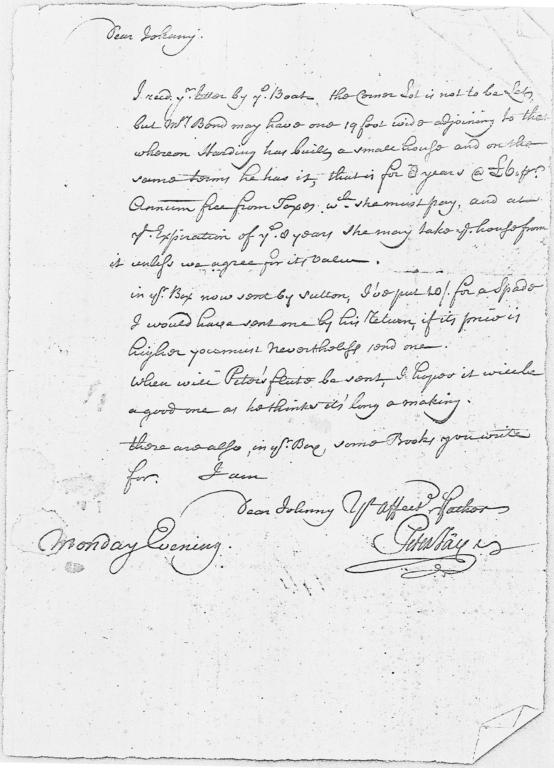 Dear Johnny.
I recd. yr. letter by ye. Boat, the Corner Lot is not to be Let,
but Mrs. Bond may have one 19 foot wide adjoining to that
whereon Harding has built a small house and on the
same terms he has it, that is for 8 years @ £6. pr.
Annum free from Taxes wch. she must pay, and at
ye. Expiration of ye. 8 years she may take ye. house from
it unless we agree for its value.
in ye. Box now sent by Sutton, I've put 10/. for a Spade
I would have sent me by his Return, if its price is
higher you must Nevertheless send one.
When will Peter's flute be sent, I hope it will be
a good one as he thinks it's long a making.
there are also, in ye. Box, some Books you write
for. I am
Dear Johnny Yr. Affect. Father
Peter Jay
Monday Evening.